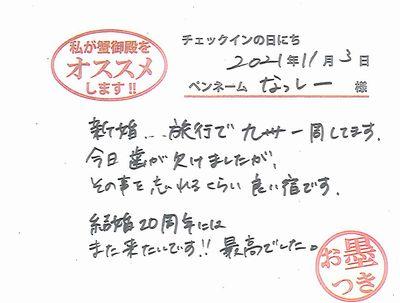 私が蟹御殿を
オススメ
します!!
チェックインの日にち
2021年11月3日
ペンネーム なっしー 様
新婚...旅行で九州一周してます。
今日歯が欠けましたが、
その事を忘れるくらい良い宿です。
結婚20周年には
また来たいです!! 最高でした。
お墨
つき